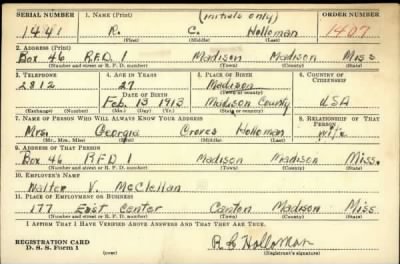 SERIAL NUMBER 1. NAME (Print) (initials only) ORDER NUMBER
1441 R. C. Holloman 1407
(First) (Middle) (Last)
2. ADDRESS (Print)
Box 46 R.F.D. Madison Madison Miss
(Number and street or R. F. D. number) (Town) (County) (State)
3. TELEPHONE 4. AGE IN YEARS 5. PLACE OF BIRTH 6. COUNTRY OF CITIZENSHIP
2812 27 Madison
DATE OF BIRTH (Town or county)
Feb. 13 1913 Madison County USA
(Exchange) (Number) (Mo.) (Day) (Yr.) (State or country)
7. NAME OF PERSON WHO WILL ALWAYS KNOW YOUR ADDRESS 8. RELATIONSHIP OF THAT PERSON
Mrs. Georgia Holloman wife
(Mr., Mrs., Miss) (First) (Middle) (Last)
9. ADDRESS OF THAT PERSON
Box 46 RFD 1 Madison Madison Miss.
(Number and street or R. F. D. number) (Town) (County) (State)
10. EMPLOYER'S NAME
Walter V. McClellan
11. PLACE OF EMPLOYMENT OR BUSINESS
177 East Center Canton Madison Miss.
(Number and street or R. F. D. number) (Town) (County) (State)
I AFFIRM THAT I HAVE VERIFIED ABOVE ANSWERS AND THAT THEY ARE TRUE.
REGISTRATION CARD
D. S. S. Form 1 R C Holloman
(Registrant's signature)